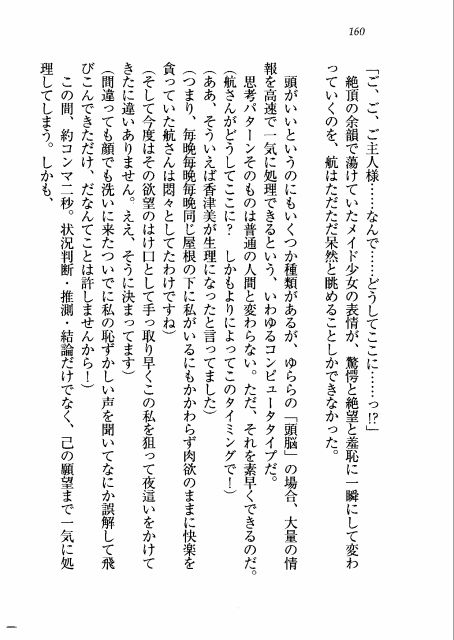 160
「ご、ご、ご主人様……なんで……どうしてここに……っ!?」
絶頂の余韻で蕩けていたメイド少女の表情が、驚愕と絶望と羞恥に一瞬にして変わ
っていくのを、航はただただ呆然と眺めることしかできなかった。
頭がいいというのにもいくつか種類があるが、ゆららの「頭脳」の場合、大量の情
報を高速で一気に処理できるという、いわゆるコンピュータタイプだ。
思考パターンそのものは普通の人間と変わらない。ただ、それを素早くできるのだ。
(航さんがどうしてここに? しかもよりによってこのタイミングで!)
(ああ、そういえば香津美が生理になったと言ってました)
(つまり、毎晩毎晩毎晩同じ屋根の下に私がいるにもかかわらず肉欲のままに快楽を
貪っていた航さんは悶々としてたわけですね)
(そして今度はその欲望のはけ口として手っ取り早くこの私を狙って夜這いをかけて
きたに違いありません。ええ、そうに決まってます)
(間違っても顔でも洗いに来たついでに私の恥ずかしい声を聞いてなにか誤解して飛
びこんできただけ、だなんてことは許しませんから!)
この間、約コンマ二秒。状況判断・推測・結論だけでなく、己の願望まで一気に処
理してしまう。しかも、